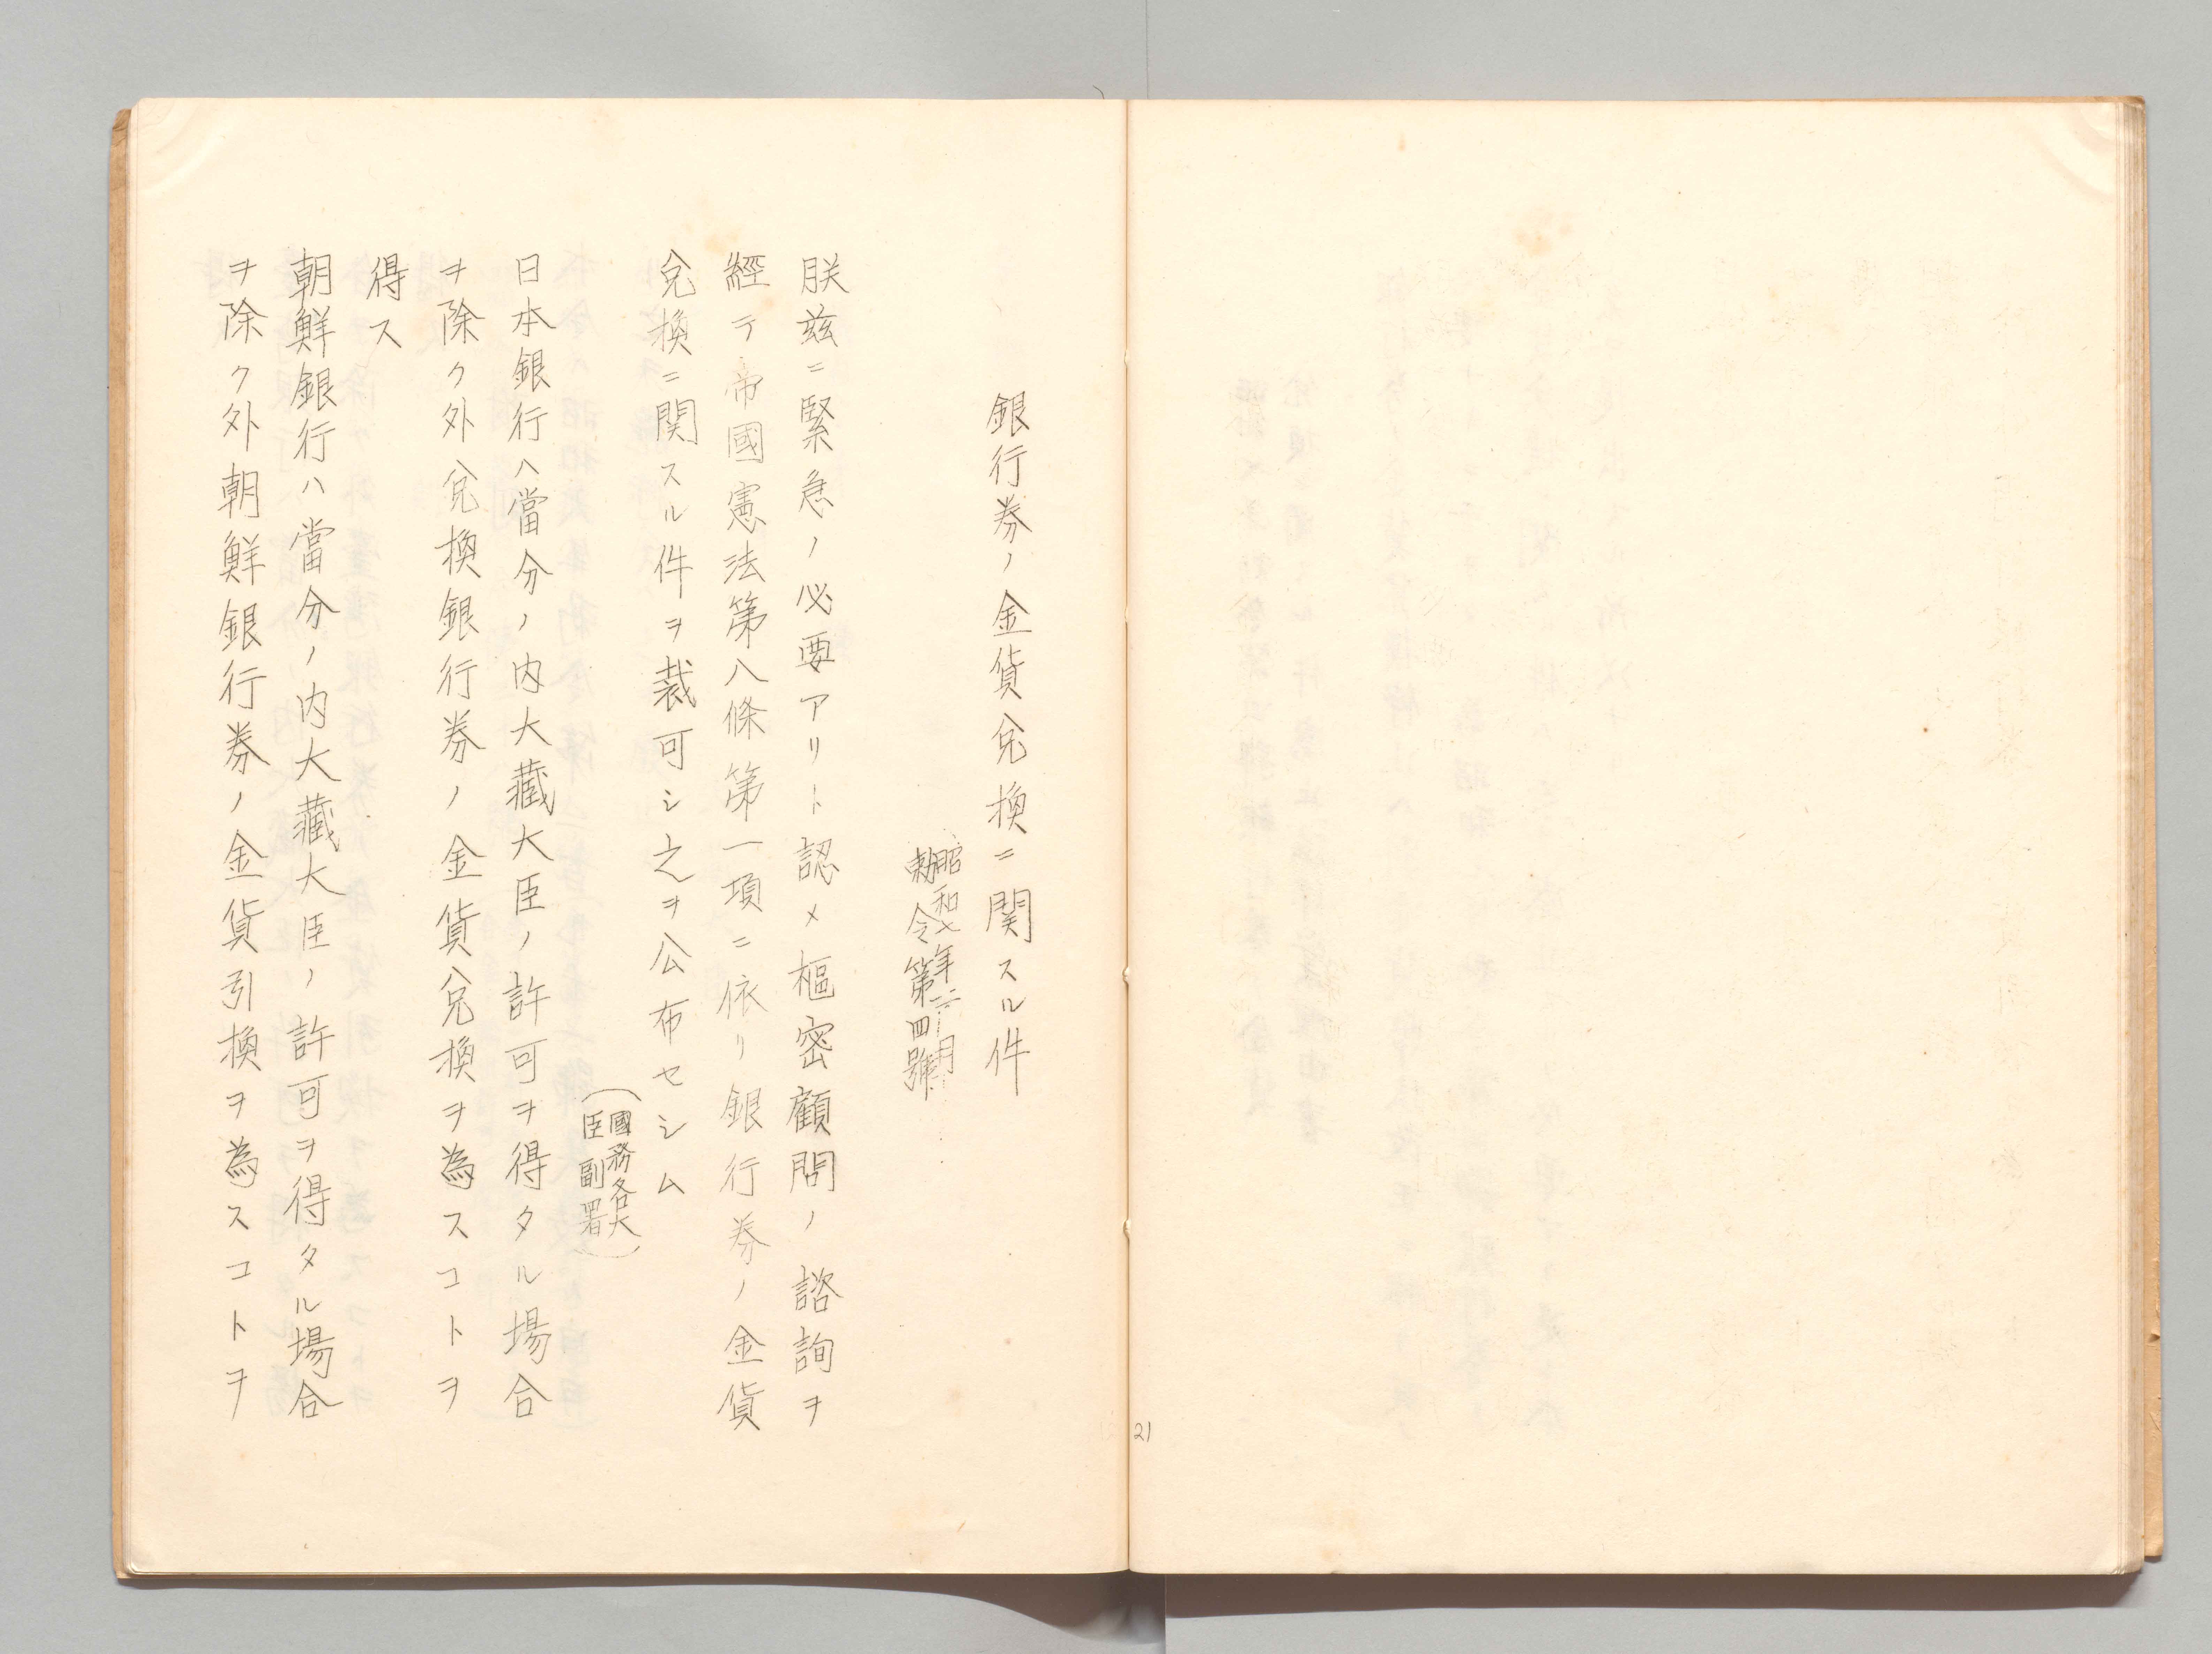 銀行券ノ金貨兌換ニ関スル件
勅令第四號
朕茲ニ緊急ノ必要アリト認メ樞密顧問ノ諮詢ヲ
經テ帝國憲法第八條第一項ニ依リ銀行券ノ金貨
兌換ニ関スル件ヲ裁可シ之ヲ公布セシム
（國務各大
臣副署）
日本銀行ハ當分ノ内大藏大臣ノ許可ヲ得タル場合
ヲ除ク外兌換銀行券ノ金貨兌換ヲ為スコトヲ
得ス
朝鮮銀行ハ當分ノ内大藏大臣ノ許可ヲ得タル場合
ヲ除ク外朝鮮銀行券ノ金貨引換ヲ為スコトヲ
21